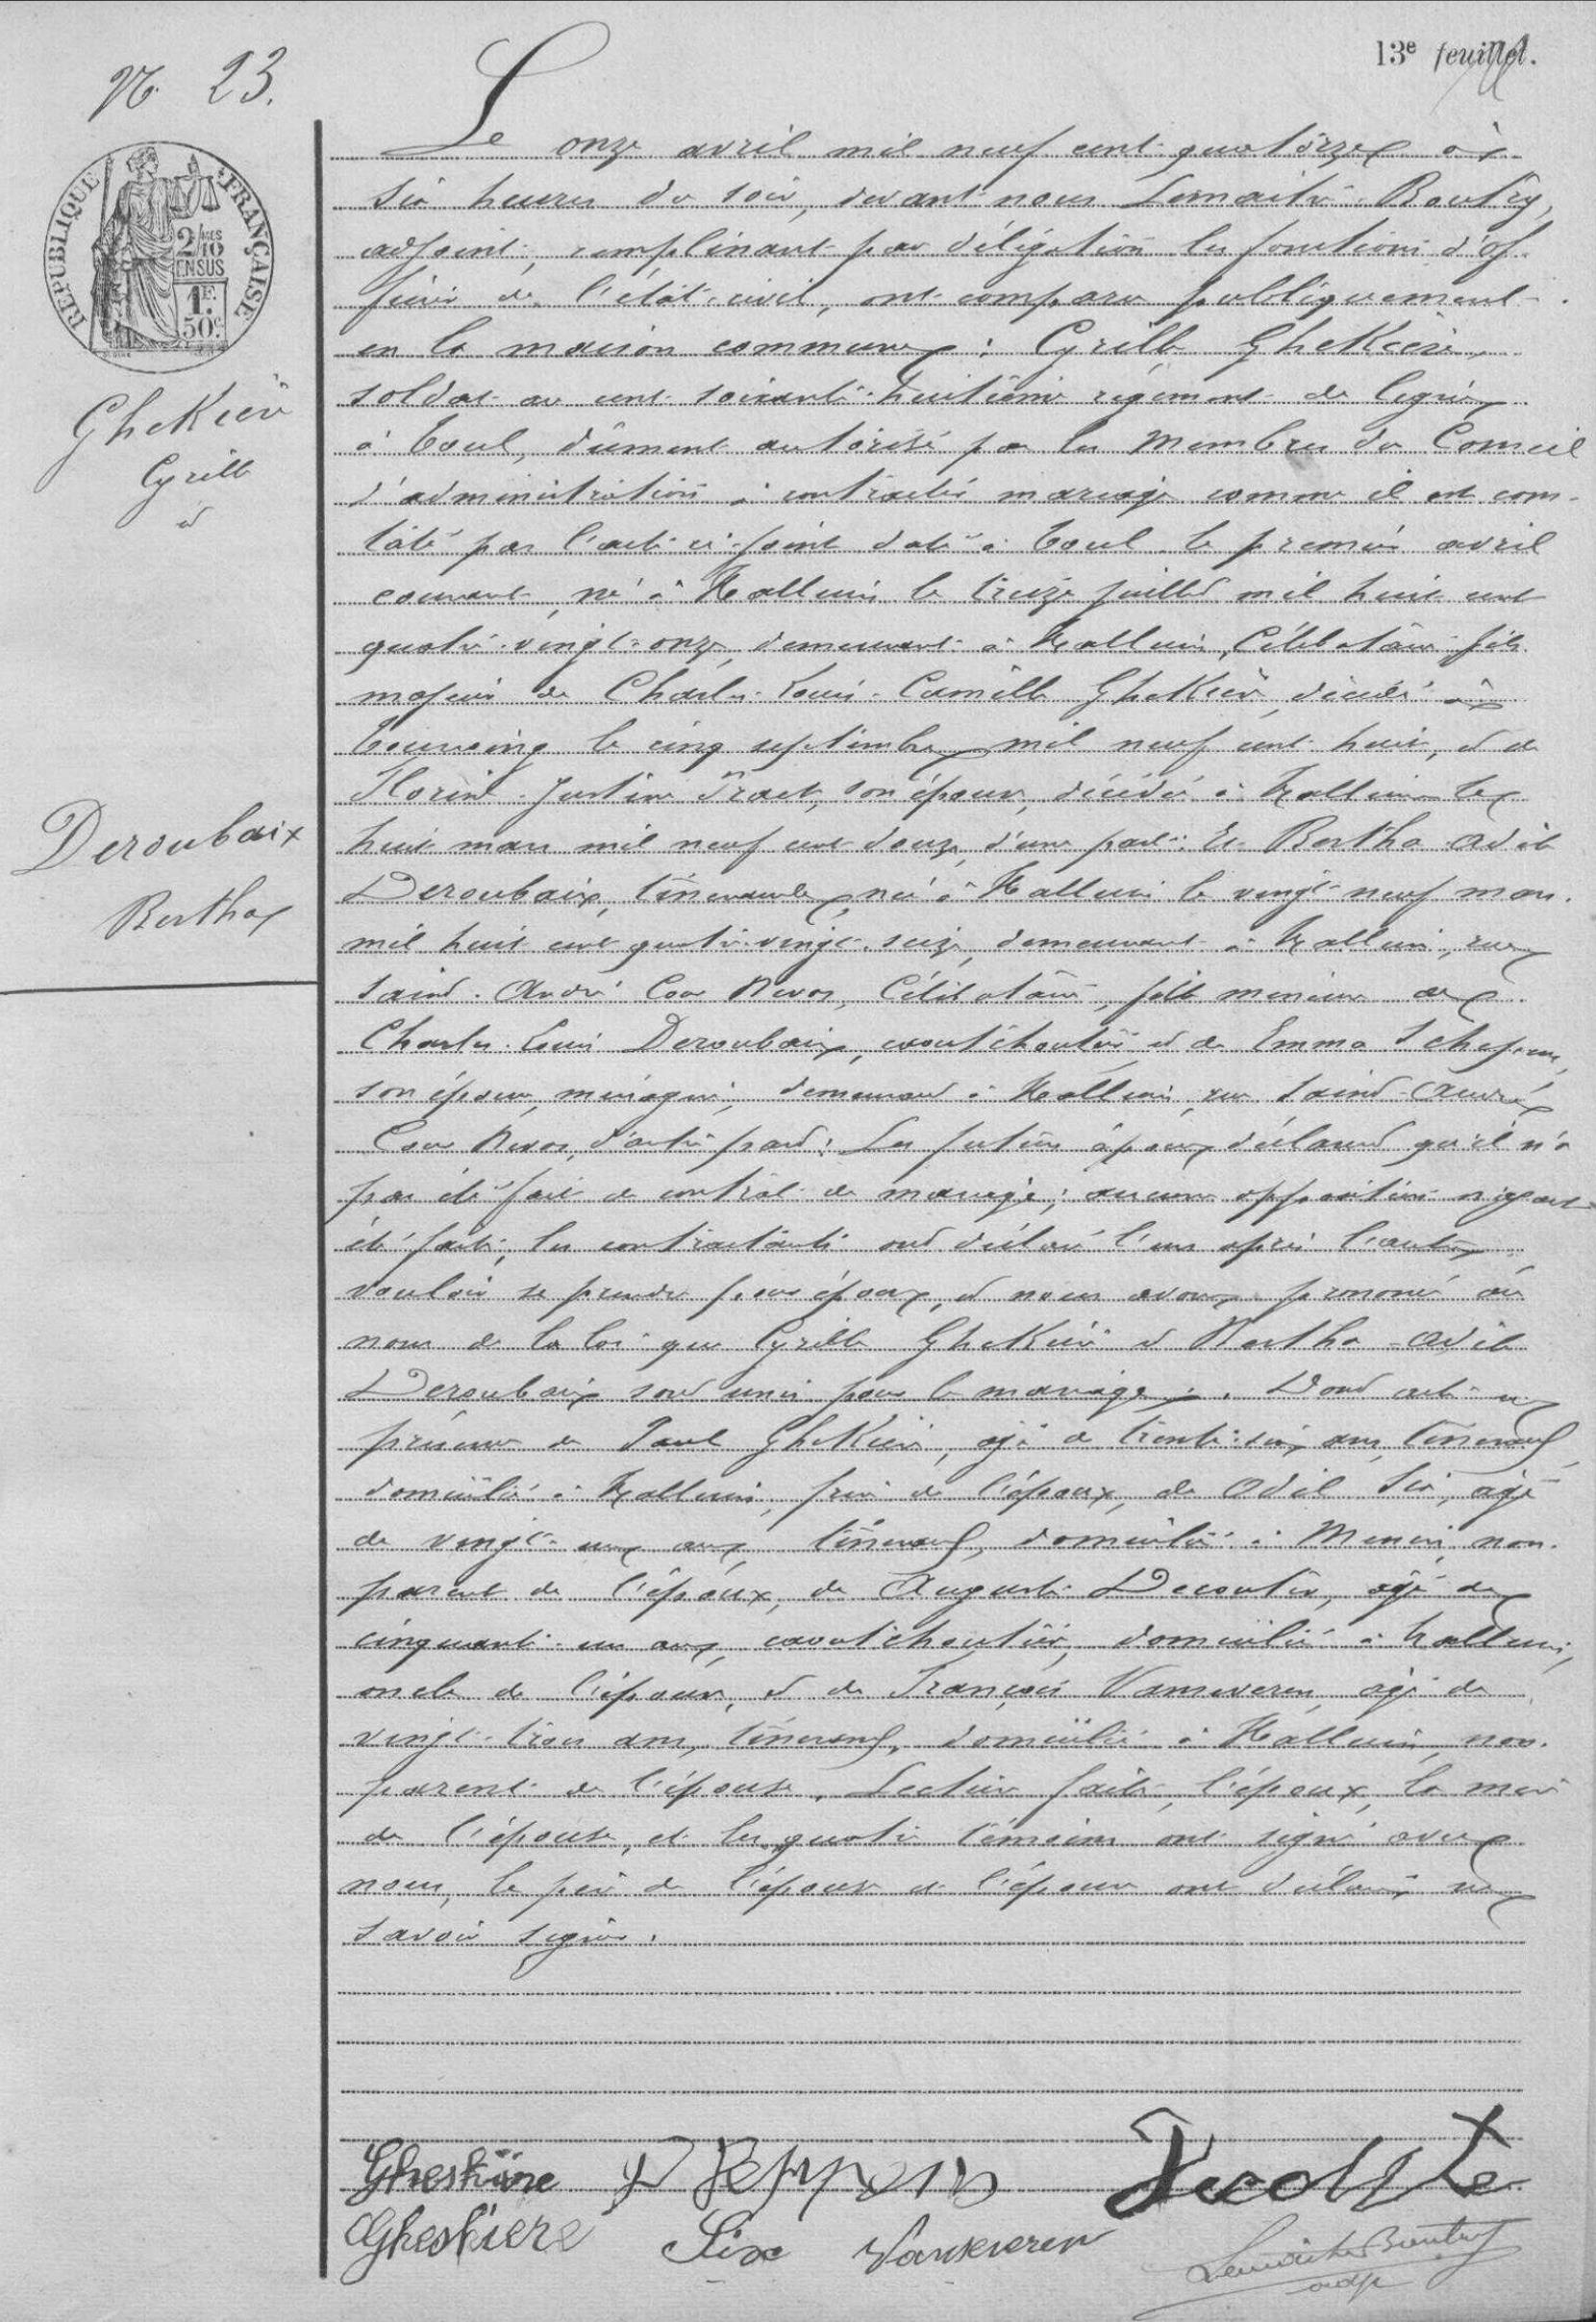 13e feuillet.
N° 23.
RÉPUBLIQUE FRANÇAISE
2/10
EN SUS
1F.
50c.
Ghekière
Cyrille
et
Deroubaix
Bertha
Le onze avril mil neuf cent quatorze à
six heures du soir, devant nous Lemaitre-Boutry,
adjoint, remplissant par délégation les fonctions d'of-
ficier de l'état-civil, ont comparu publiquement
en la maison commune : Cyrille Ghekière,
soldat au cent soixante-huitième régiment de ligne
à Toul, dûment autorisé par les Membres du Conseil
d'administration à contracter mariage comme il est cons-
taté par l'acte ci-joint daté à Toul le premier avril
courant, né à Halluin le treize juillet mil huit cent
quatre-vingt-onze, demeurant à Halluin, Célibataire, fils
majeur de Charles-Louis-Camille Ghekière, décédé à
Tourcoing le cinq septembre mil neuf cent huit, et de
Justine son épouse, décédée à Halluin le
huit mars mil neuf cent douze, d'une part. Et Bertha
Deroubaix, tisserande, née à Halluin le vingt-neuf mars
mil huit cent quatre-vingt-seize, demeurant à Halluin, rue
Saint-André Cour Célibataire, fille mineure de
Charles-Louis Deroubaix, caoutchoutier et de Emma
son épouse, ménagère, demeurant à Halluin, rue Saint-André
Cour d'autre part : Les futurs époux déclarent qu'il n'a
pas été fait de contrat de mariage ; aucune opposition n'ayant
été faite, les contractants ont déclaré l'un après l'autre
vouloir se prendre pour époux, et nous avons prononcé au
nom de la loi que Cyrille Ghekière et Bertha
Deroubaix sont unis par le mariage. Dont acte en
présence de Paul Ghekière, âgé de trente-six ans, tisserand,
domicilié à Halluin, frère de l'époux, de Odil Six, âgé
de vingt-un ans, tisserand, domicilié à Menin, non
parent de l'époux, de Auguste âgé de
cinquante-un ans, caoutchoutier, domicilié à Halluin,
oncle de l'épouse, et de François Vanseveren, âgé de
vingt-trois ans, tisserand, domicilié à Halluin, non
parent de l'épouse. Lecture faite, l'époux, la mère
de l'épouse, et les quatre témoins ont signé avec
nous, le père de l'épouse et l'épouse ont déclaré ne
savoir signer.
Gheskière
Gheskiere Six Vanseveren Lemaitre Boutry
adj